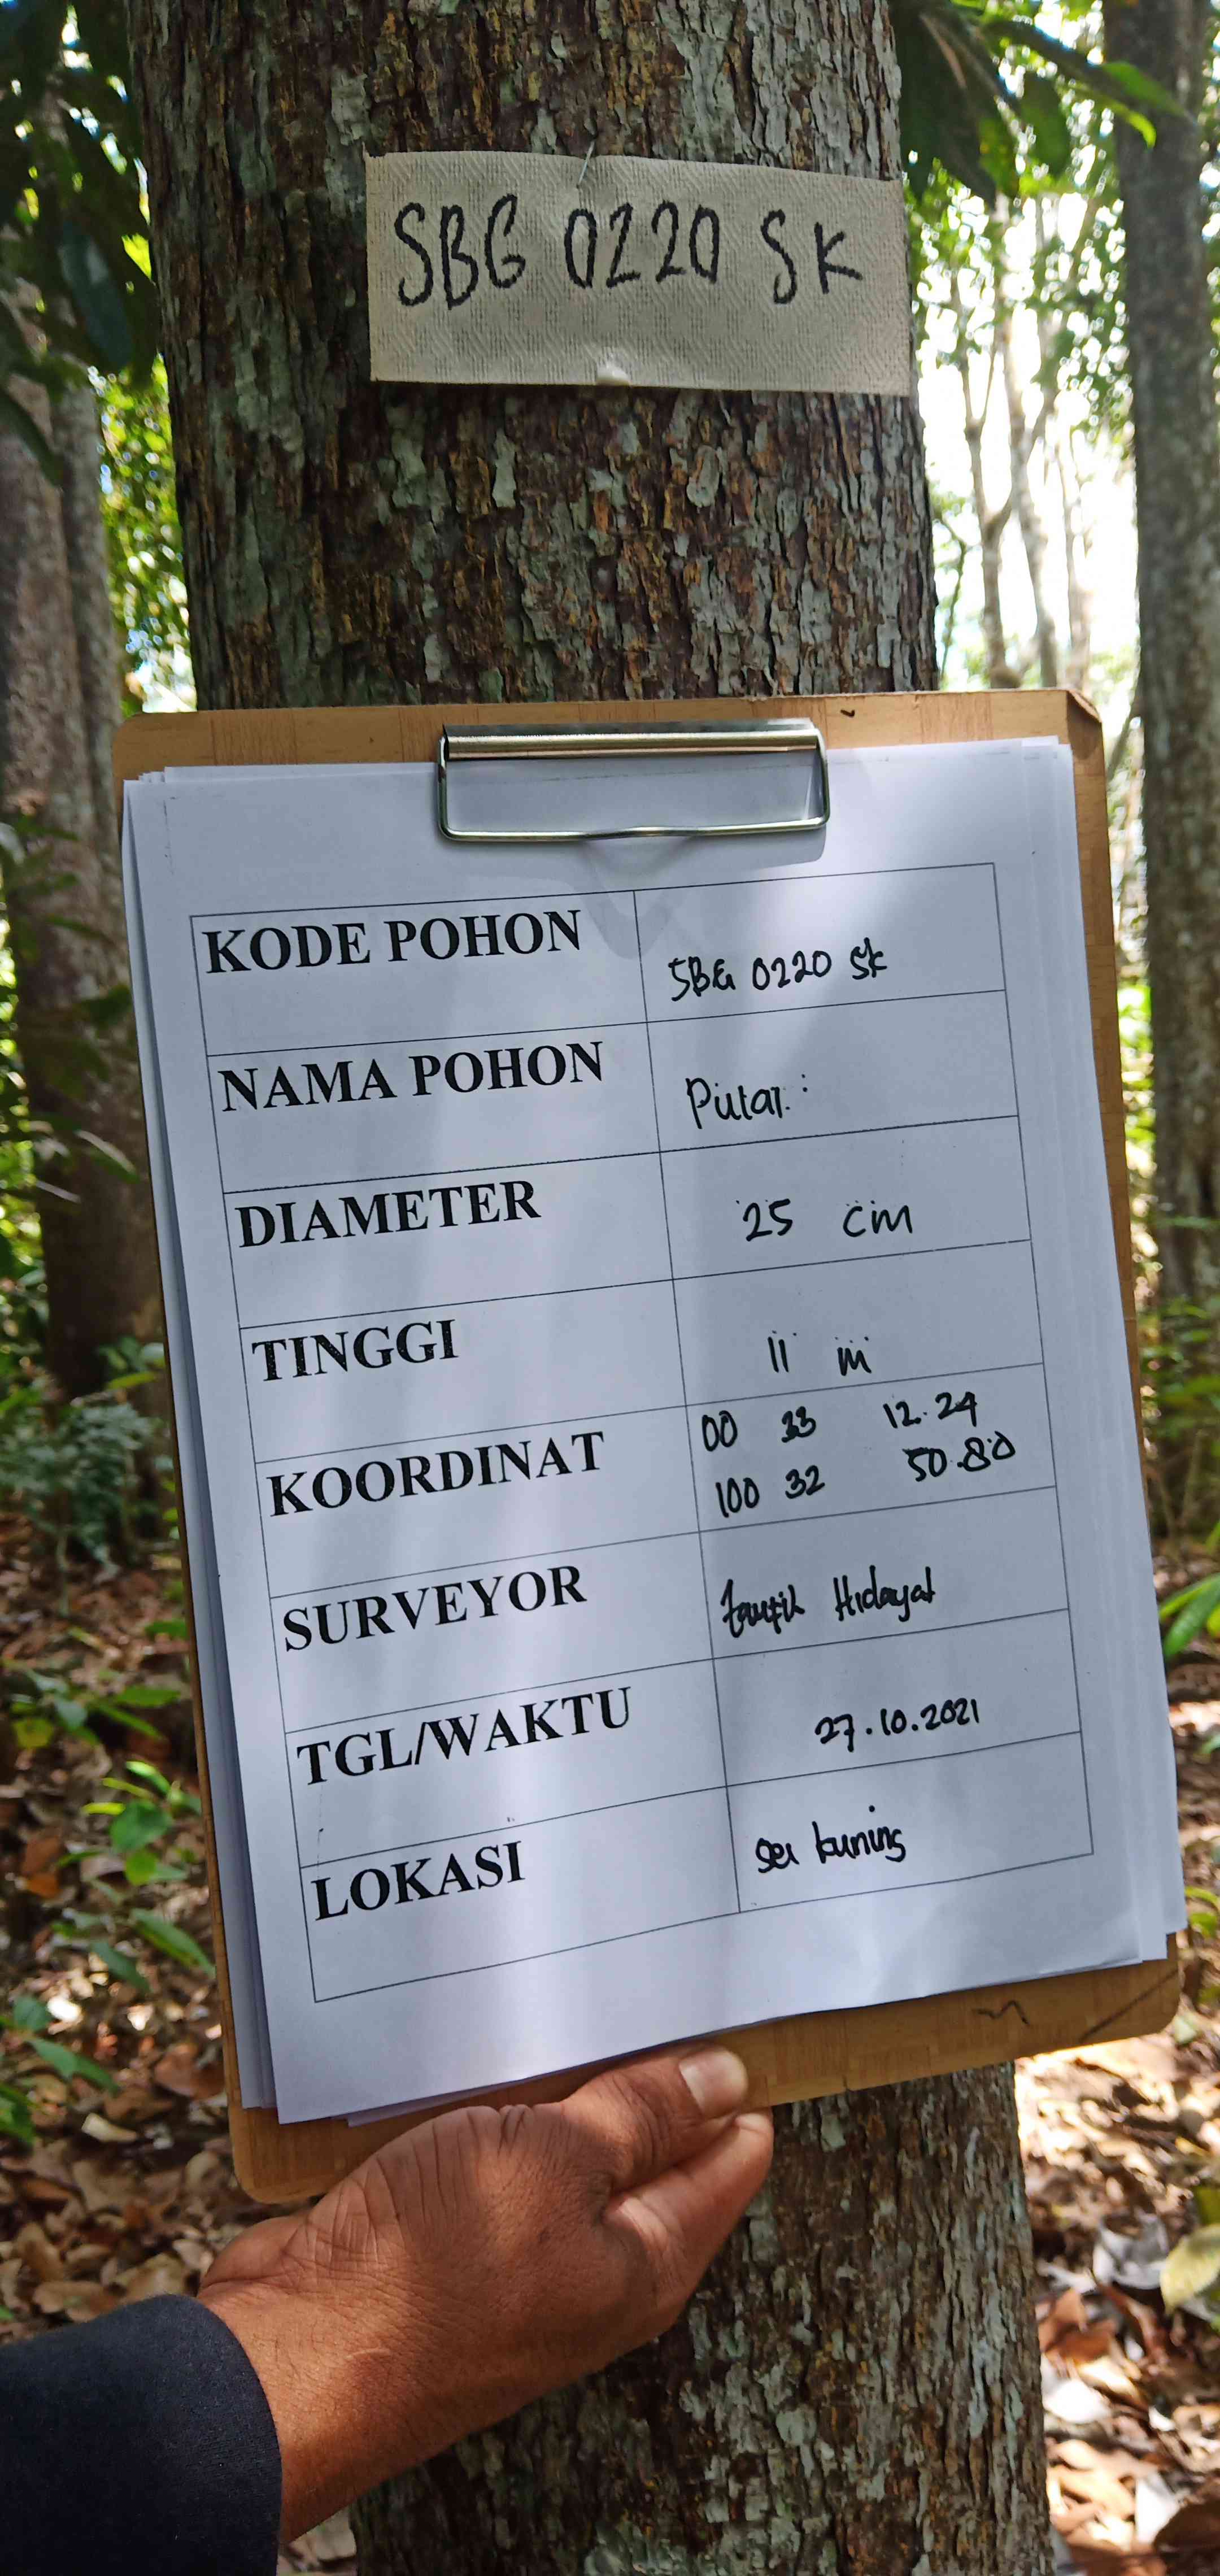 SBG 0220 SK
KODE POHON SBG 0220 SK
NAMA POHON Putat
DIAMETER 25 cm
TINGGI 11 m
KOORDINAT 00 33 12.24
100 32 50.80
SURVEYOR Taufik Hidayat
TGL/WAKTU 27.10.2021
LOKASI sei kuning